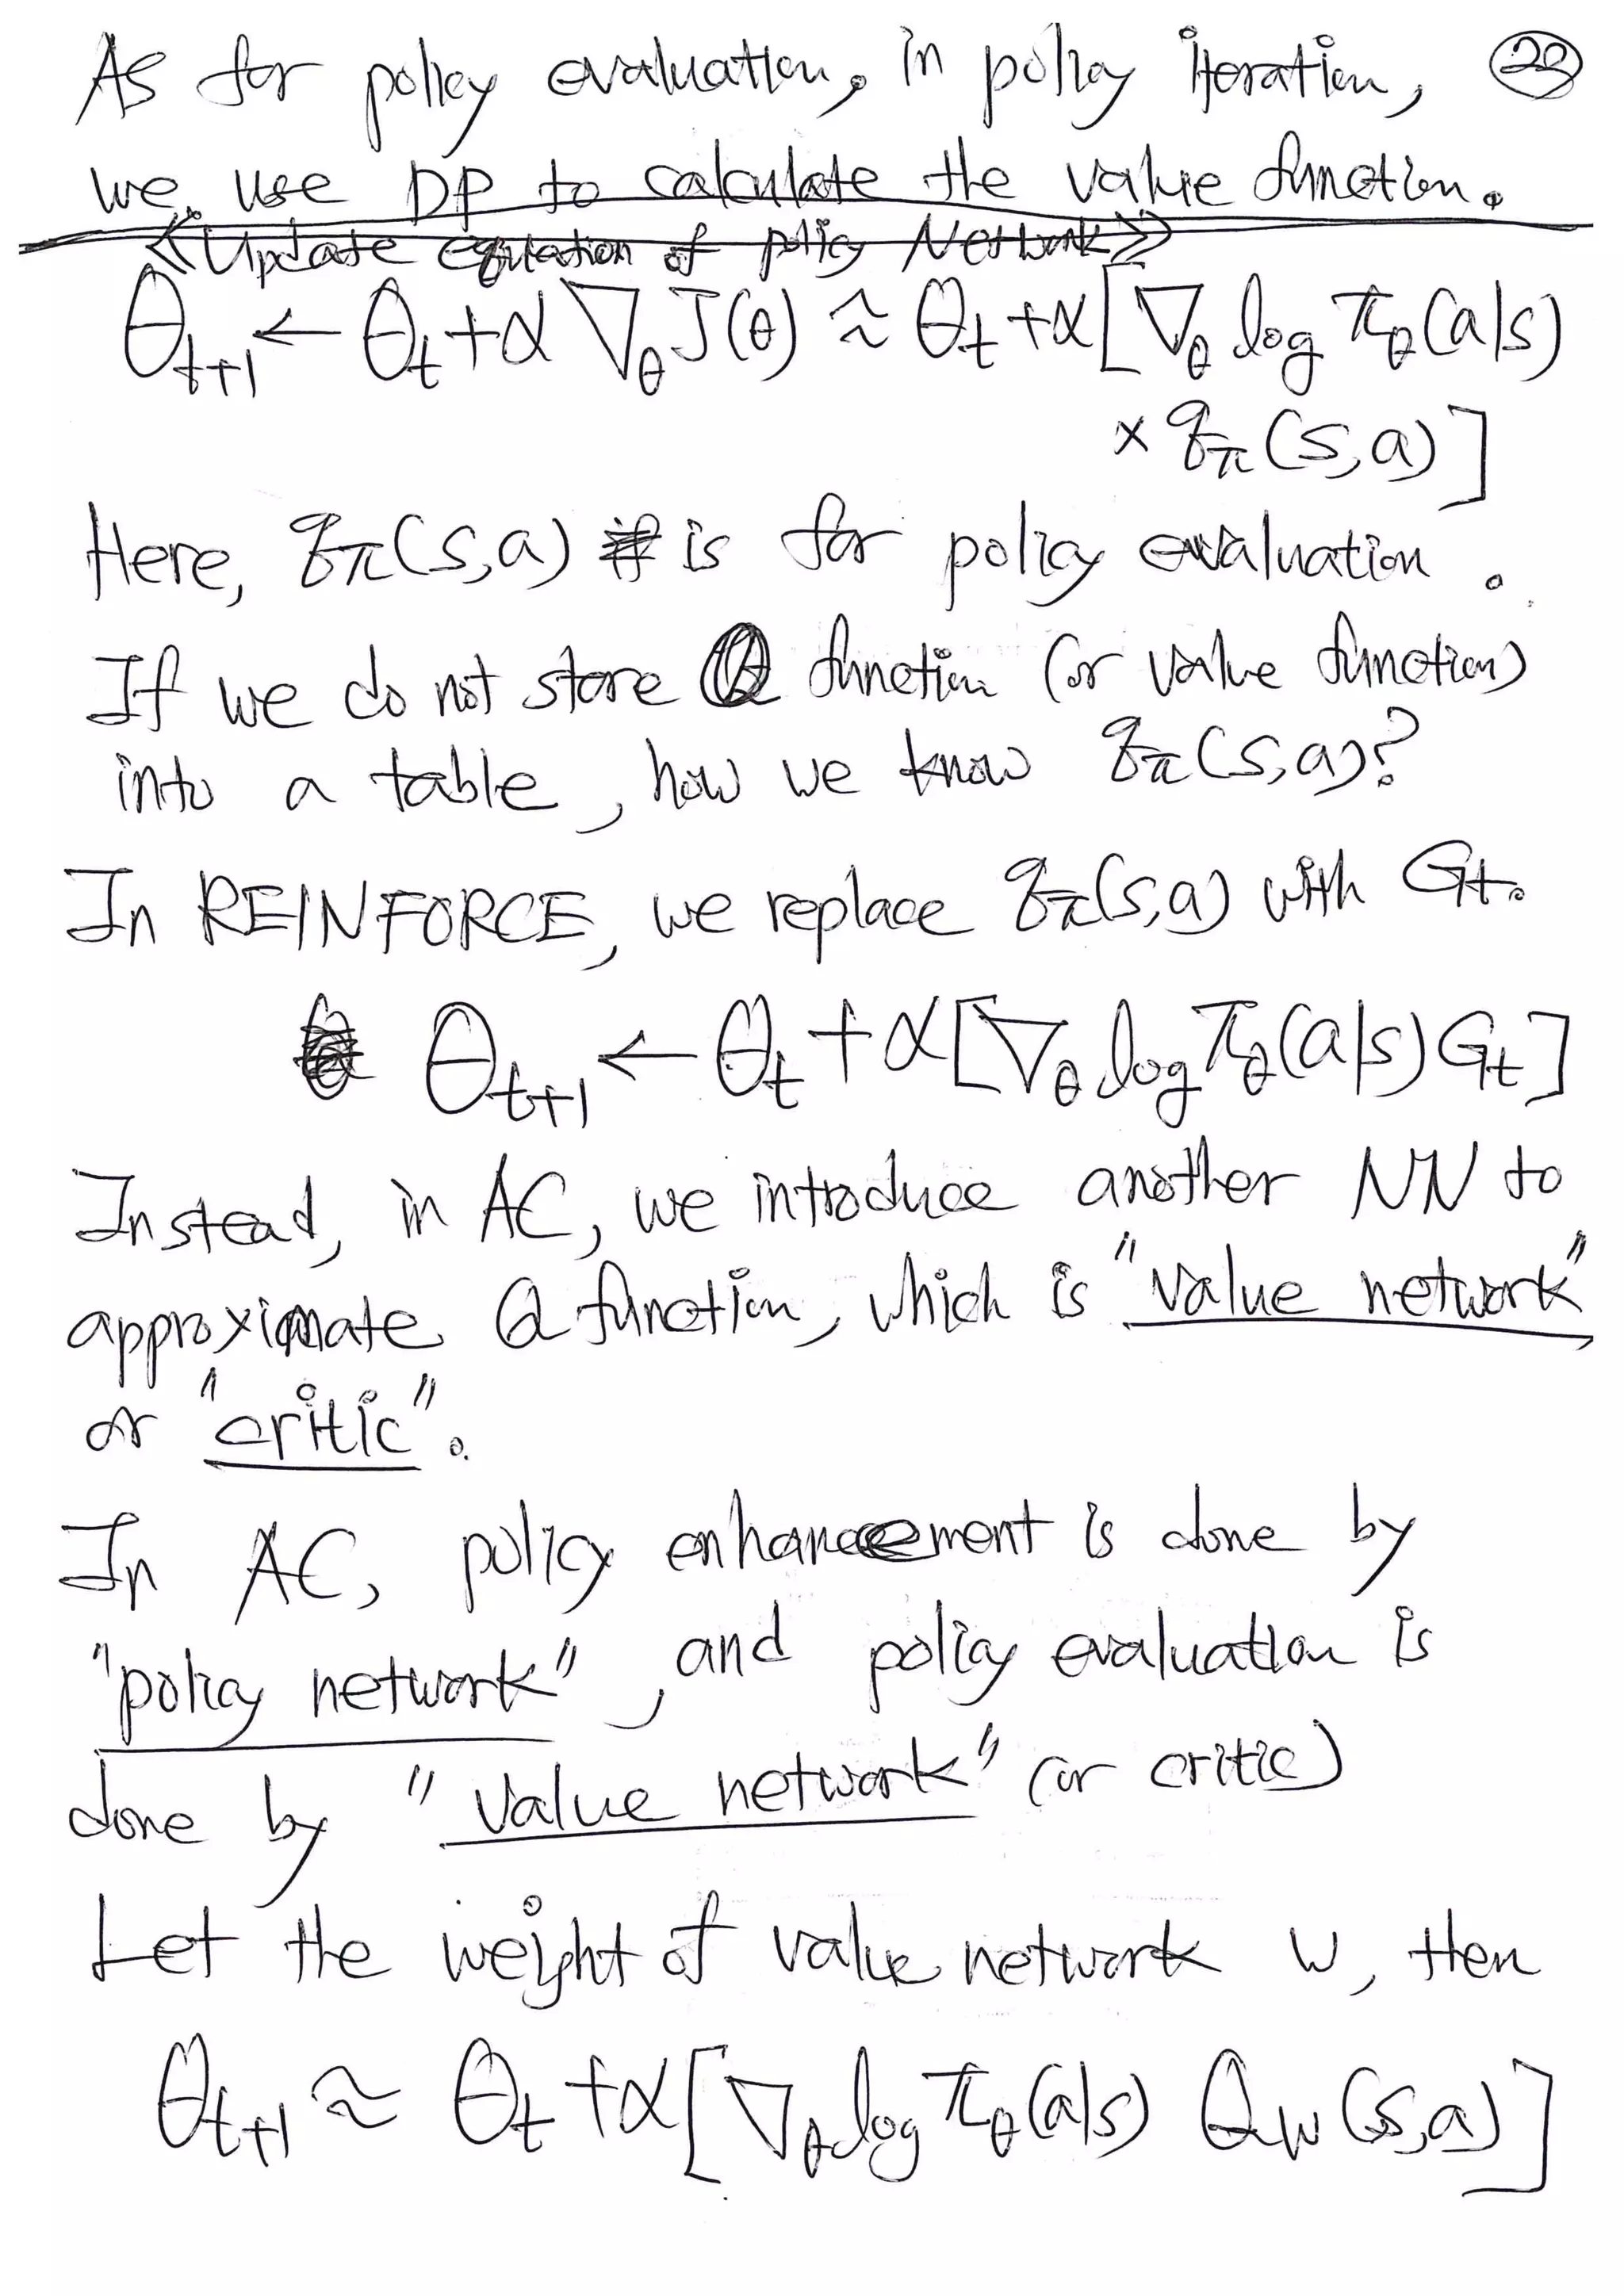 As for policy evaluation, in policy iteration, 28
we use DP to calculate the value function.
≪Update equation of policy Network≫
θ_{t+1} ← θ_t + α ∇_θ J(θ) ≈ θ_t + α [ ∇_θ log π_θ(a|s)
× q_π(s,a) ]
Here, q_π(s,a) is for policy evaluation.
If we do not store Q function (or value function)
into a table, how we know q_π(s,a)?
In REINFORCE, we replace q_π(s,a) with G_t.
θ_{t+1} ← θ_t + α [ ∇_θ log π_θ(a|s) G_t ]
Instead, in AC, we introduce another NN to
approximate Q function, which is "value network"
or "critic".
In AC, policy enhancement is done by
"policy network", and policy evaluation is
done by "value network" (or critic)
Let the weight of value network w, then
θ_{t+1} ≈ θ_t + α [ ∇_θ log π_θ(a|s) Q_w(s,a) ]